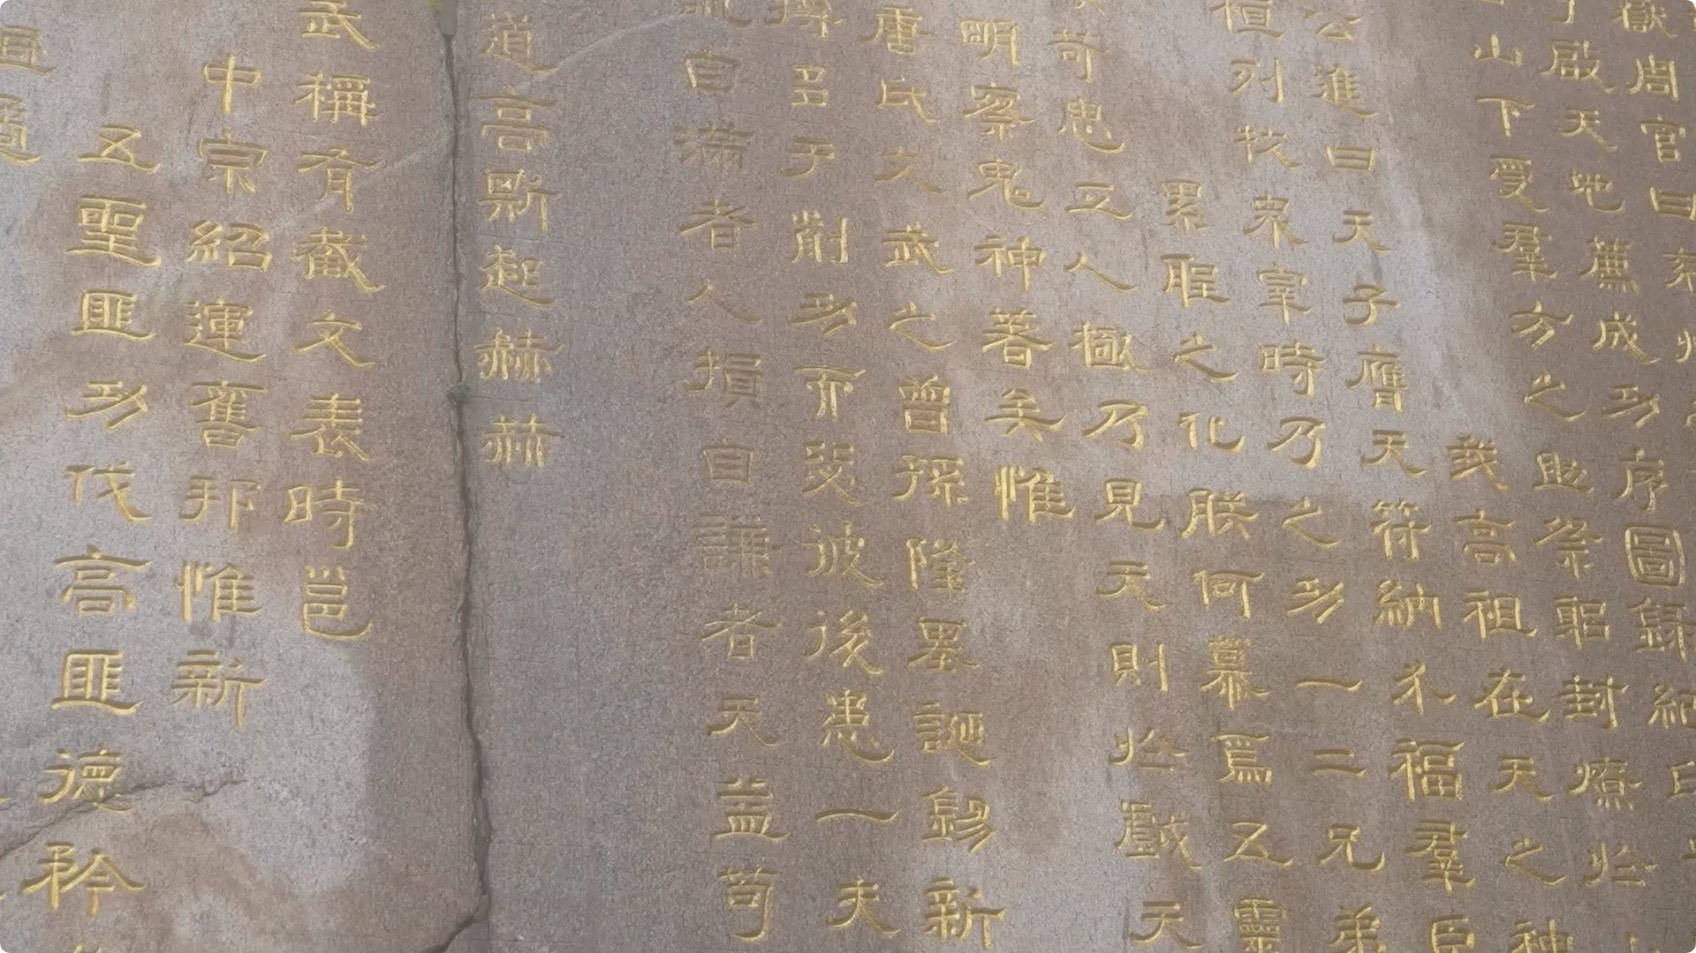 嶽周官曰
啟天地薦成功序圖錄紀
山下受羣方之助祭躬封燎
我高祖在天之神
公進曰天子膺天符納介福羣臣
恒列牧衆宰時乃之功一二兄弟
累聖之化朕何慕焉五靈
苛忠立人極乃見天則於戲天
明察鬼神著矣惟
唐氏文武之曾孫隆基誕錫新
多于削功而毖彼後患一夫
自滿者人損自謙者天益苟
道高斯起赫赫
武稱有截文表時邕
中宗紹運舊邦惟新
五聖匪功伐高匪德矜